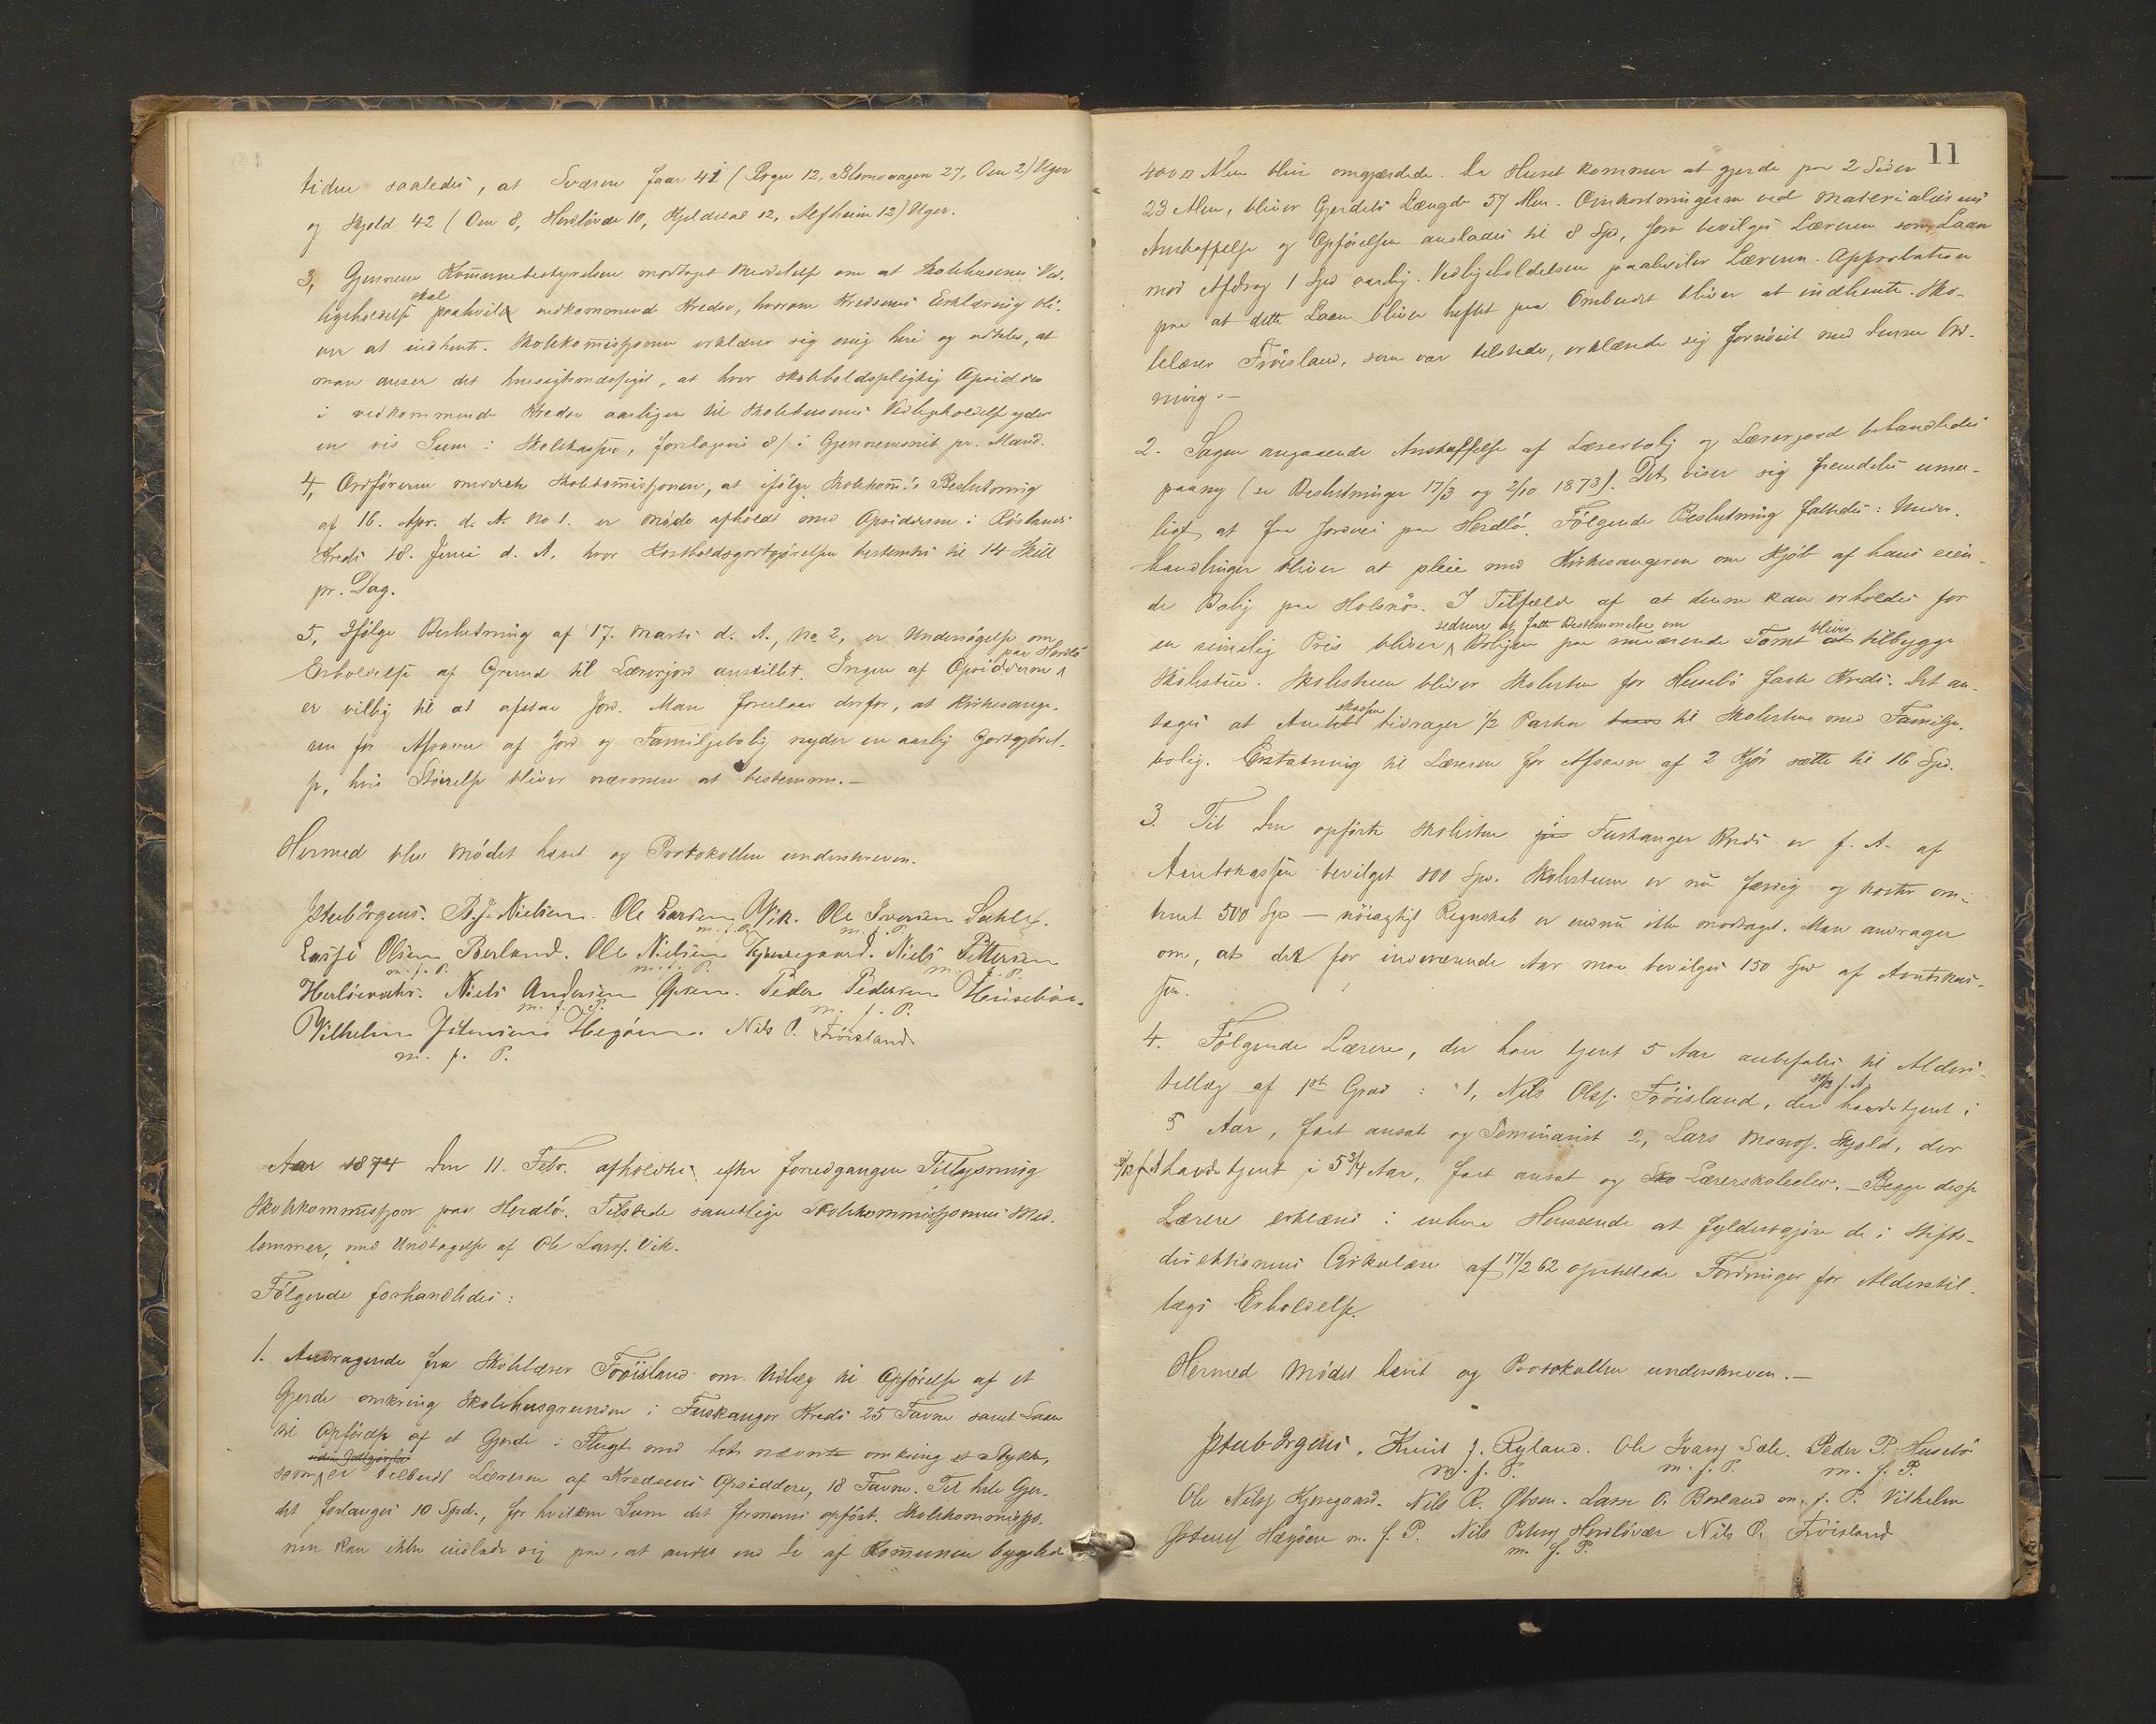 tiden saaledes, at Sværen faar 41 (Rogn 12, Blomvaagen 27, Oen 2) Uger
og Skjold 42 (Oen 8, Herdlevær 10, Kjeldstad 12, Alfheim 12) Uger.
3, Gjennem Kommunebestyrelsen modtaget Meddelelse om at Skolehusenes Ved-
ligeholdelse skal paahvile vedkommende Kredse, hvorom Kredsenes Erklæring bli-
ver at indhente. Skolekommissjonen erklærer sig enig heri og udtaler, at
man anser det hensigtsmæssigst, at hver skoleholdspligtig Opsidder
i vedkommende Kredse aarligen til Skolehusenes Vedligeholdelse yder
en vis Sum i Skolekassen, forslagsvis 8/ i Gjennemsnit pr. Mand.
4, Ordføreren underrett. Skolekommissjonen, at ifølge Skolekom.s Beslutning
af 16. Apr. d. A. No 1. er Møde afholdt med Opsidderne i Røslands
Kreds 18. Juni d. A. hvor Kostholdsgodtgjørelsen bestemtes til 14 Skill
pr. Dag.
5, Ifølge Beslutning af 17. Marts d. A., No 2, er Undersøgelse om
Erholdelse af Grund til Lærerjord anstillet. Ingen af Opsidderne paa Herdlø
er villig til at afstaa Jord. Man foreslaar derfor, at Kirkesange-
ren for Afsavn af Jord og Familjebolig nyder en aarlig Godtgjørel-
se, hvis Størrelse bliver nærmere at bestemme.—
Hermed blev Mødet hævet og Protokollen underskreven.
J Stub Irgens. B. J. Nielsen. Ole Larsen Vik. Ole Iversen Sæhle.
m. f. P. m. f. P.
Lasse Olsen Berland. Ole Nielsen Kjeregaard. Niels Pettersen
m. f. P. m. f. P. m. f. P.
Herløevær. Niels Andersen Peder Pedersen Huusebøe
m. f. P. m. f. P.
Vilhelm Hegøen. Nils O. Frøisland
m. f. P.
Aar 1874 den 11. Febr. afholdtes efter foregangen Tillysning
Skolekommissjon paa Herdlø. Tilstede samtlige Skolekommissjonens Med-
lemmer, med Undtagelse af Ole Larss. Vik.
Følgende forhandledes:
1. Andragende fra Skolelærer Frøisland om Udlæg til Opførelse af et
Gjerde omkring Skolehusgrunden i Fuskanger Kreds 25 Favne samt Laan
til Opførelse af et Gjerde i Flugt med det nævnte omkring et Stykke,
som er tilbudt Læreren af Kredsens Opsiddere, 18 Favne. Til hele Gjer-
det forlanges 10 Spd., for hvilken Sum det formenes opført. Skolekommissjo-
nen kan ikke indlade sig paa, at andet end de af Kommunen bygslede
11
400 □ Alen blive omgjærdede. Da Huset kommer at gjerde paa 2 Sider
23 Alen, bliver Gjerdets Længde 57 Alen. Omkostningerne ved Materialiernes
Anskaffelse og Opførelsen anslades til 8 Spd, som bevilges Læreren som Laan
mod Afdrag 1 Spd aarlig. Vedligeholdelsen paahviler Læreren. Approbation
paa at dette Laan bliver heftet paa Ombudet bliver at indhente. Sko-
lelærer Frøisland, som var tilstede, erklærede sig fornøiet med denne Ord-
ning.—
2. Sagen angaaende Anskaffelse af Lærerbolig og Lærerjord behandledes
paany (se Beslutninger 17/3 og 2/10 1873). Det viser sig fremdeles umu-
ligt at faa Jordvei paa Herdlø. Følgende Beslutning fattedes: Under-
handlinger bliver at pleie med Kirkesangeren om Kjøb af hans eien-
de Bolig paa Holsnøs. I Tilfælde af at denne kan erholdes for
sednere at fatte Bestemmelse om bliver
en rimelig Pris bliver Boligen paa nuværende Tomt at tilbygge
Skolestue. Skolestuen bliver Skolestue for Husebø faste Kreds. Det an-
tages at Amtskassen bidrager 1/2 Parten til Skolestue med Familje-
bolig. Erstatning til Læreren for Afsavn af 2 Kjør sættes til 16 Spd.
3. Til den opførte Skolestue i Fuskanger Kreds er f. A. af
Amtskassen bevilget 100 Spd. Skolestuen er nu færdig og koster om-
trent 500 Spd — nøiagtigt Regnskab er endnu ikke modtaget. Man andrager
om, at der for indeværende Aar maa bevilges 150 Spd af Amtskas-
sen.
4. Følgende Lærere, der have tjent 5 Aar anbefales til Alders-
tillæg af 1ste Grad: 1, Nils Olss. Frøisland, der 31/12 f. A. havde tjent i
5 Aar, fast ansat og Seminarist 2, Lars Monss. Skjold, der
31/12 f. A havde tjent i 5 3/4 Aar, fast ansat og Lærerskoleelev.— Begge disse
Lærere erklæres i enhver Henseende at fyldestgjøre de i Stifts-
direktionens Cirkulære af 17/2 62 opstillede Fordringer for Alderstil-
lægs Erholdelse.
Hermed Mødet hævet og Protokollen underskreven.—
J Stub Irgens. Knud J. Ryland. Ole Ivars. Sæle. Peder P. Husebø
m. f. P. m. f. P. m. f. P.
Ole Nilss Kjeregaard. Nils R. Lasse O. Berland m. f. P. Vilhelm
Hægøen m. f. P. Nils Peters Herdlevær Nils O. Frøisland
m. f. P.